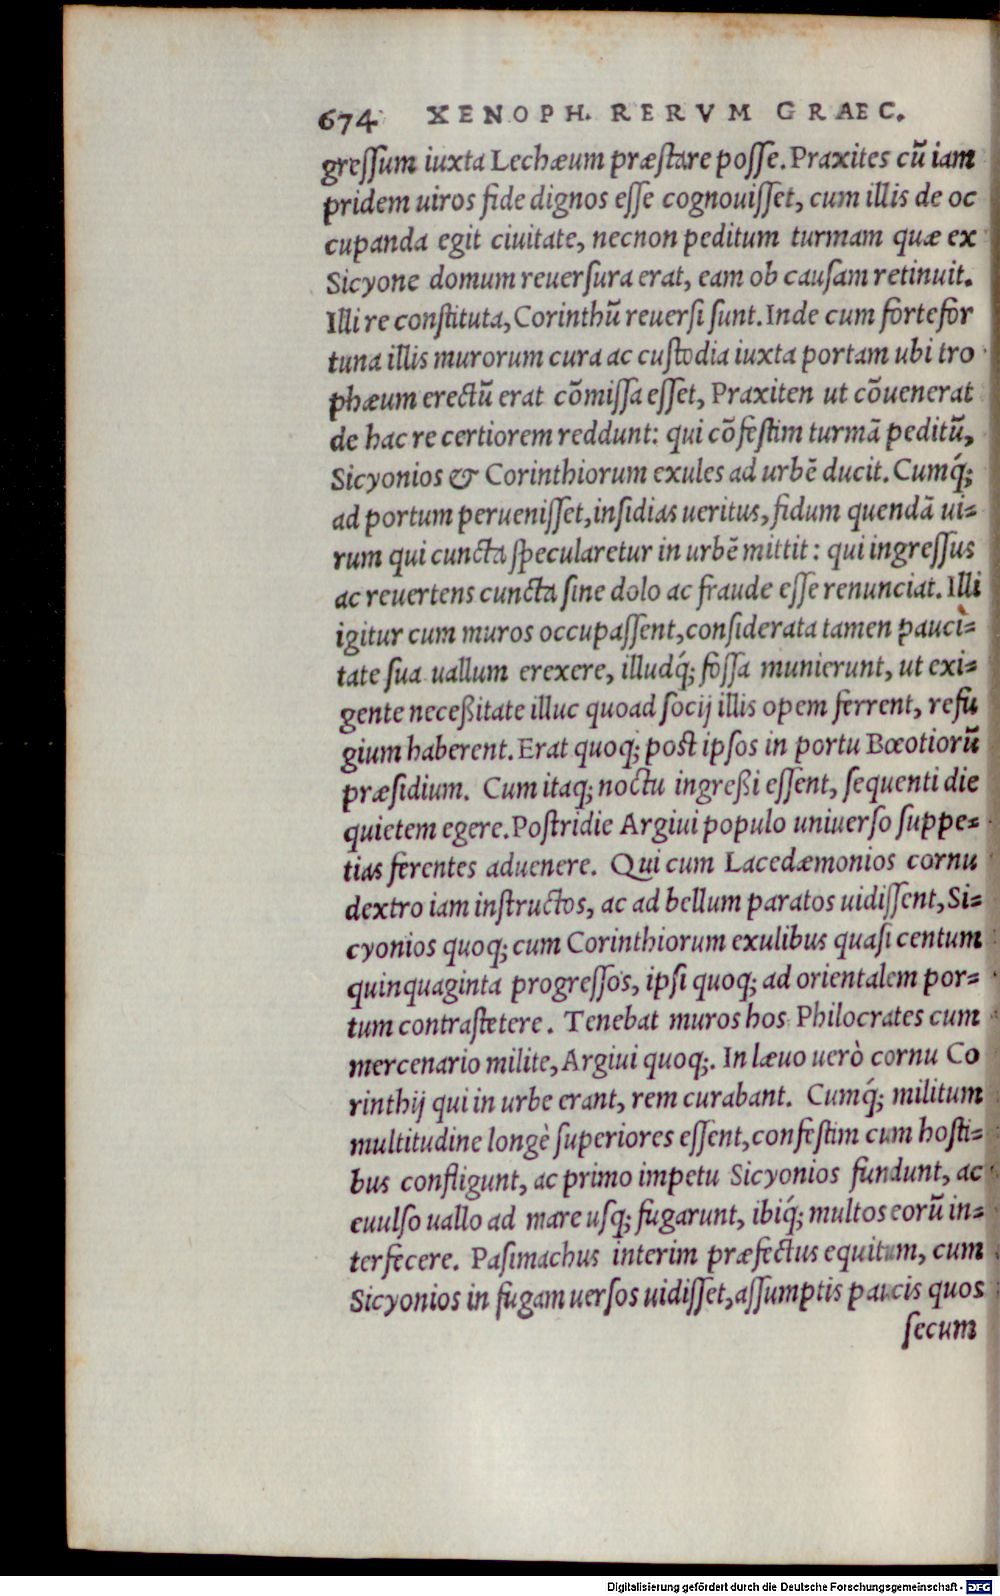 674 XENOPH. RERVM GRAEC.
greſſum iuxta Lechæum præſtare poſſe. Praxites cũ iam
pridem uiros fide dignos eſſe cognouiſſet, cum illis de oc
cupanda egit ciuitate, necnon peditum turmam quæ ex
Sicyone domum reuerſura erat, eam ob cauſam retinuit.
Illi re conſtituta, Corinthũ reuerſi ſunt. Inde cum forte for
tuna illis murorum cura ac cuſtodia iuxta portam ubi tro
phæum erectũ erat cõmiſſa eſſet, Praxiten ut cõuenerat
de hac re certiorem reddunt: qui cõfeſtim turmã peditũ,
Sicyonios & Corinthiorum exules ad urbẽ ducit. Cumq́;
ad portum perueniſſet, inſidias ueritus, fidum quendã ui=
rum qui cuncta ſpecularetur in urbẽ mittit: qui ingreſſus
ac reuertens cuncta ſine dolo ac fraude eſſe renunciat. Illi
igitur cum muros occupaſſent, conſiderata tamen pauci=
tate ſua uallum erexere, illudq́; foſſa munierunt, ut exi=
gente neceßitate illuc quoad ſocij illis opem ferrent, refu
gium haberent. Erat quoq; poſt ipſos in portu Bœotiorũ
præſidium. Cum itaq; noctu ingreßi eſſent, ſequenti die
quietem egere. Poſtridie Argiui populo uniuerſo ſuppe=
tias ferentes aduenere. Qui cum Lacedæmonios cornu
dextro iam inſtructos, ac ad bellum paratos uidiſſent, Si=
cyonios quoq; cum Corinthiorum exulibus quaſi centum
quinquaginta progreſſos, ipſi quoq; ad orientalem por=
tum contraſtetere. Tenebat muros hos Philocrates cum
mercenario milite, Argiui quoq;. In læuo uerò cornu Co
rinthij qui in urbe erant, rem curabant. Cumq́; militum
multitudine longè ſuperiores eſſent, confeſtim cum hoſti=
bus confligunt, ac primo impetu Sicyonios fundunt, ac
euulſo uallo ad mare uſq; fugarunt, ibiq́; multos eorũ in=
terfecere. Paſimachus interim præfectus equitum, cum
Sicyonios in fugam uerſos uidiſſet, aſſumptis paucis quos
ſecum
Digitalisierung gefördert durch die Deutsche Forschungsgemeinschaft - DFG